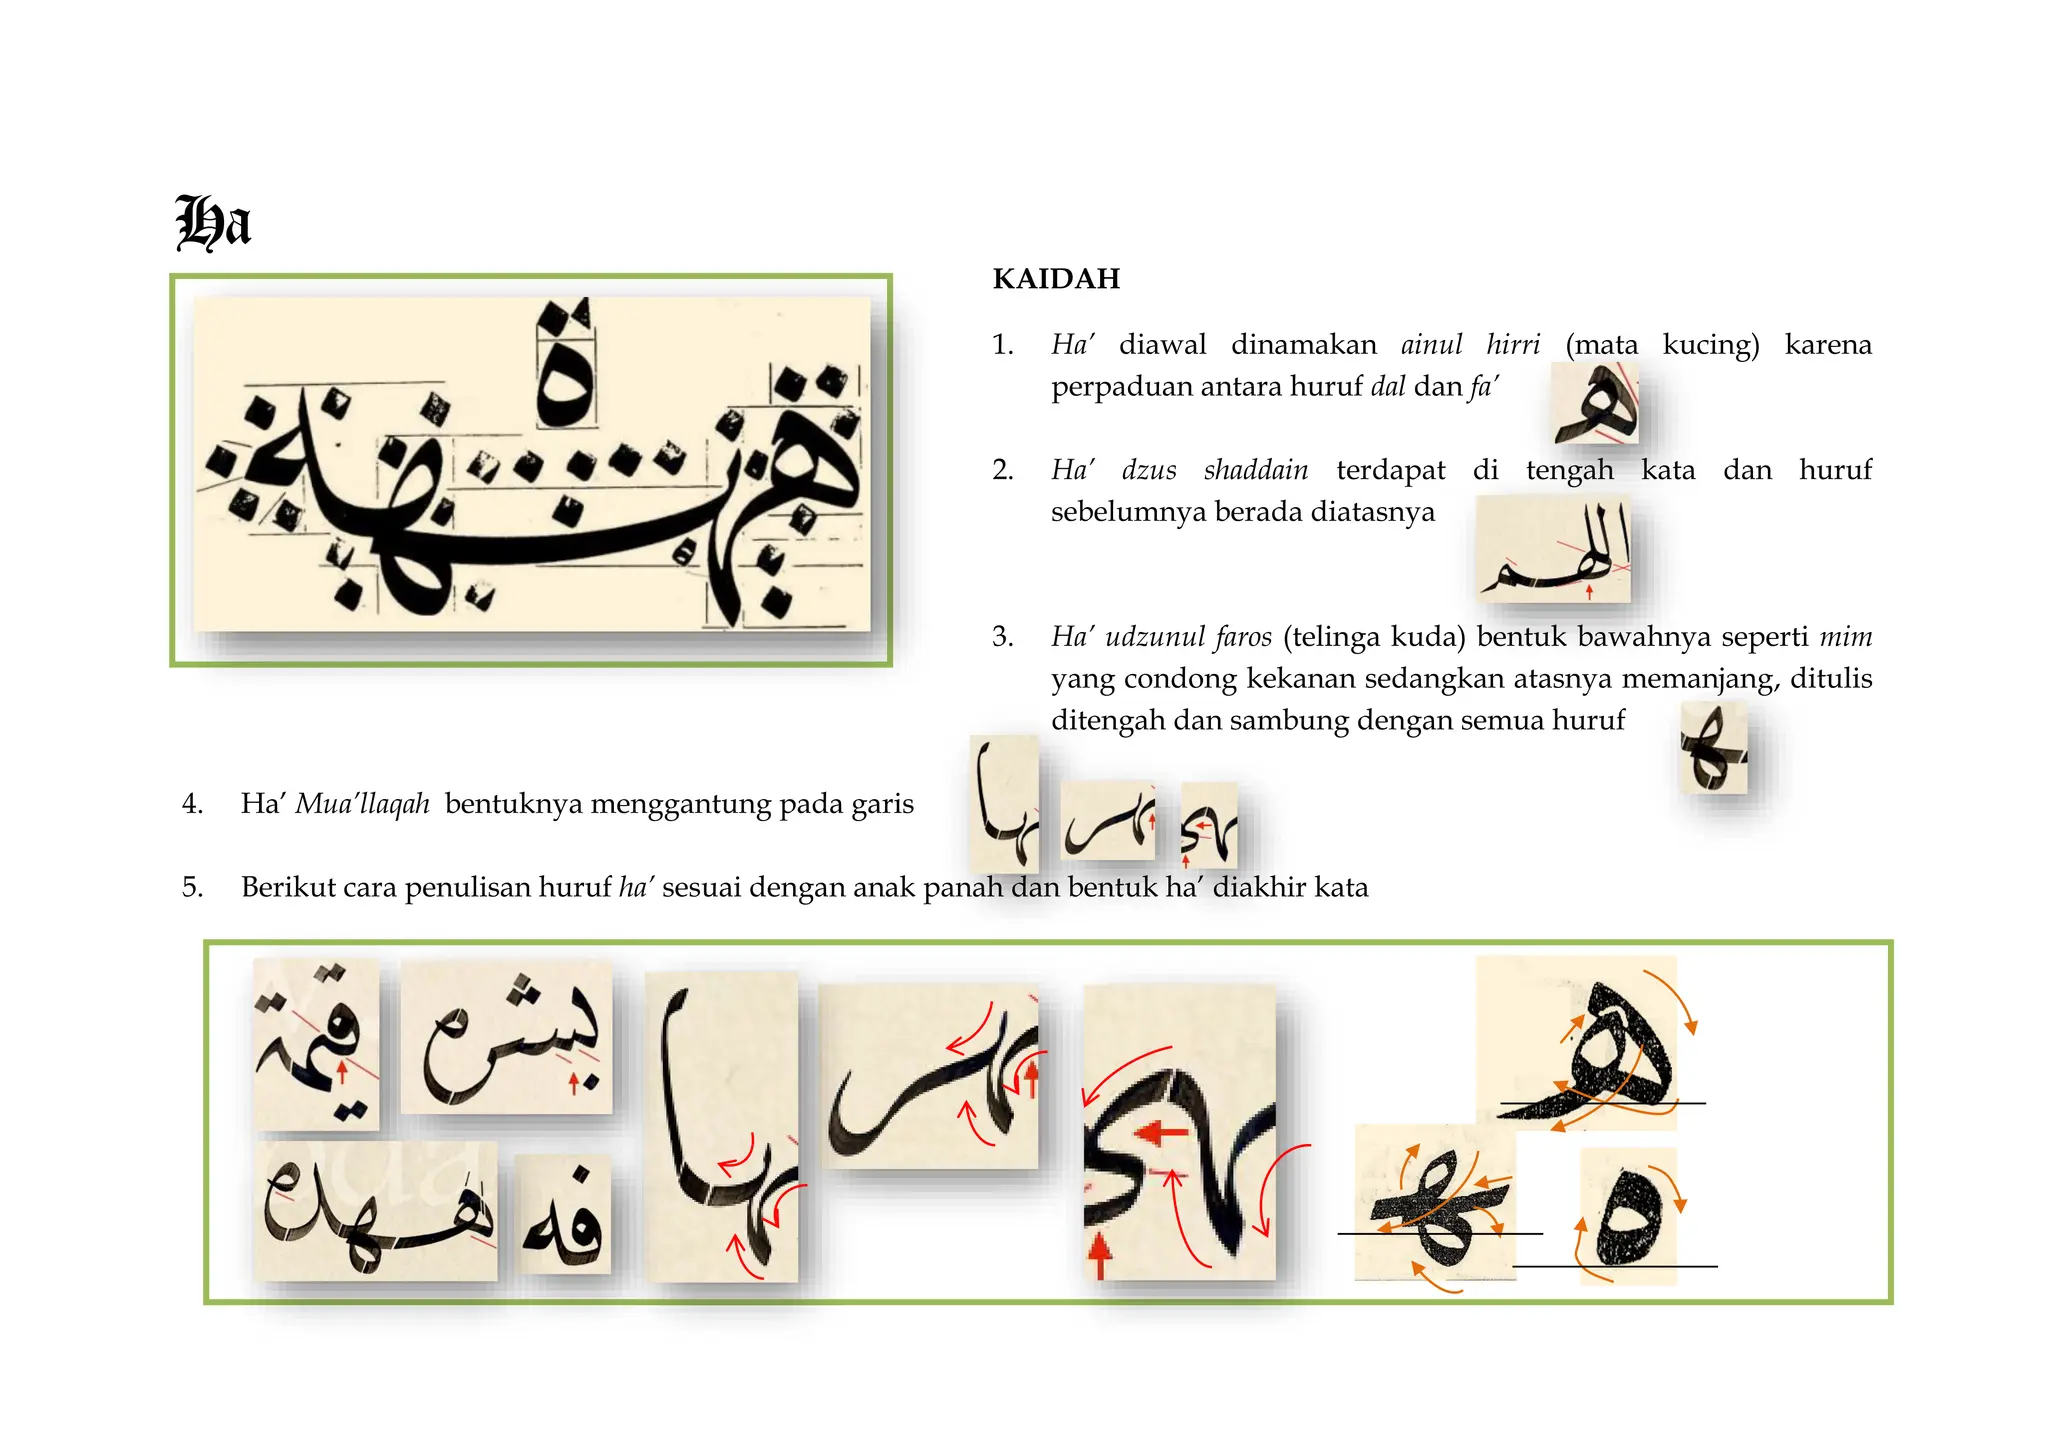 Ha
KAIDAH
1. Ha’ diawal dinamakan ainul hirri (mata kucing) karena
perpaduan antara huruf dal dan fa’
هـ
2. Ha’ dzus shaddain terdapat di tengah kata dan huruf
sebelumnya berada diatasnya
اللهم
3. Ha’ udzunul faros (telinga kuda) bentuk bawahnya seperti mim
yang condong kekanan sedangkan atasnya memanjang, ditulis
ditengah dan sambung dengan semua huruf
ـهـ
4. Ha’ Mua’llaqah bentuknya menggantung pada garis
5. Berikut cara penulisan huruf ha’ sesuai dengan anak panah dan bentuk ha’ diakhir kata
قيمة
فه
هـ
ـهـ
ه